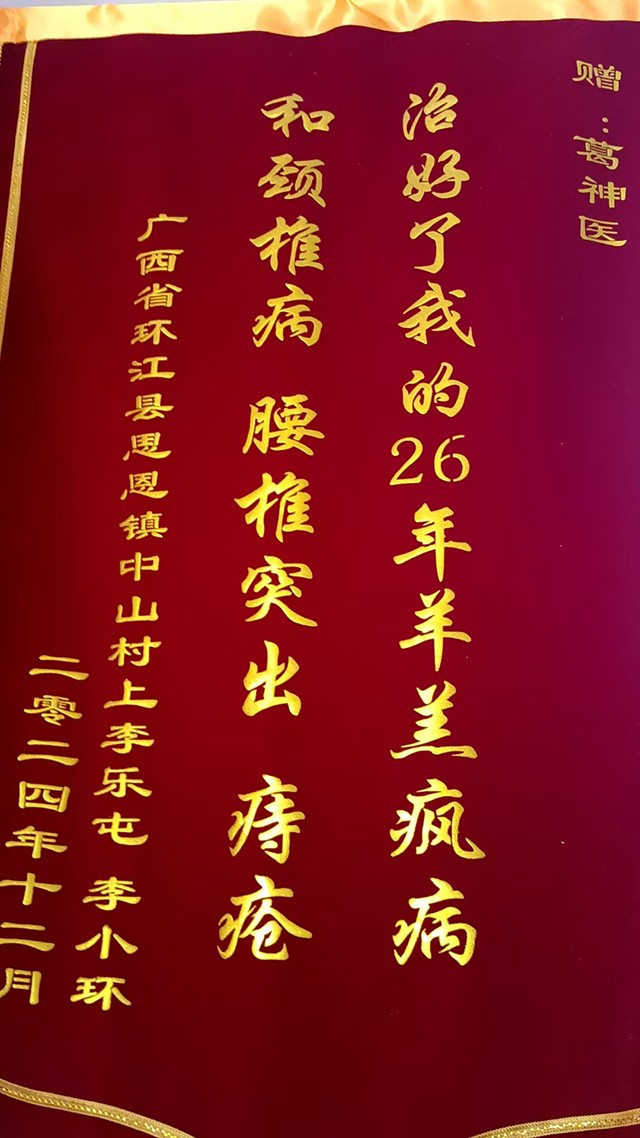 赠：葛神医
治好了我的26年羊羔疯病
和颈椎病 腰椎突出 痔疮
广西省环江县思恩镇中山村上李乐屯 李小环
二零二四年十二月